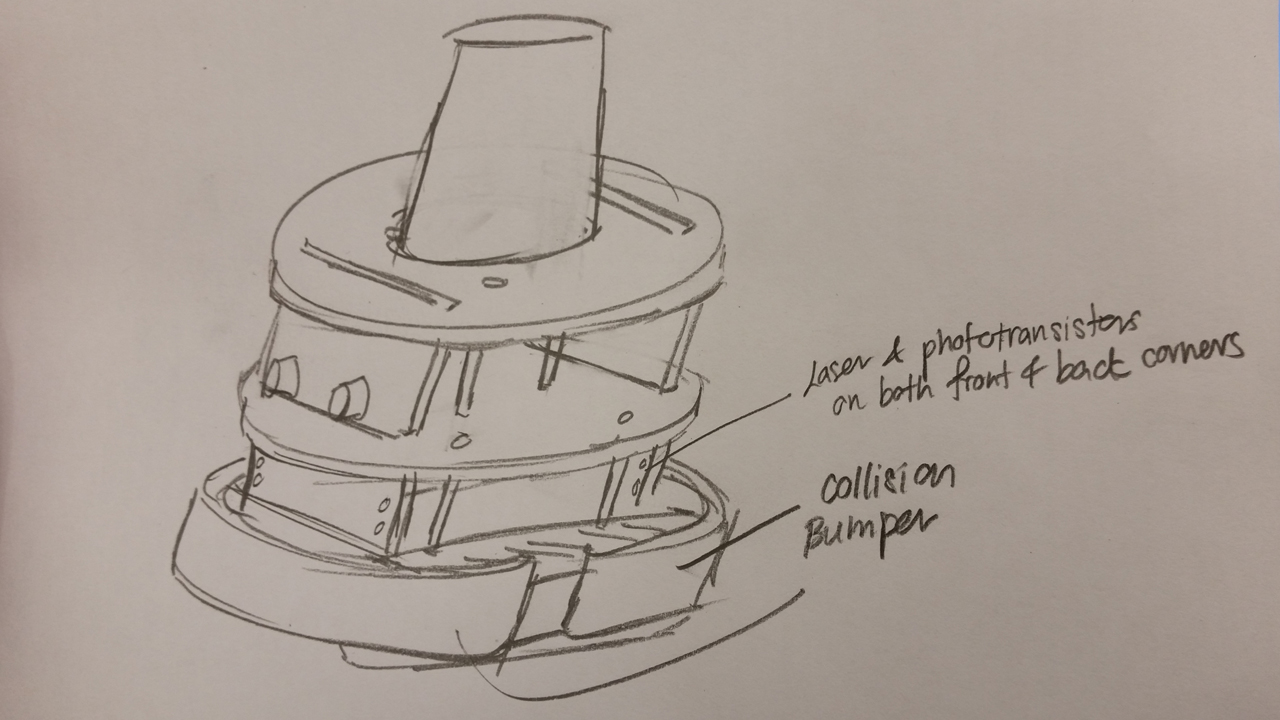 Laser & phototransistors
on both front & back corners
Collision
Bumper